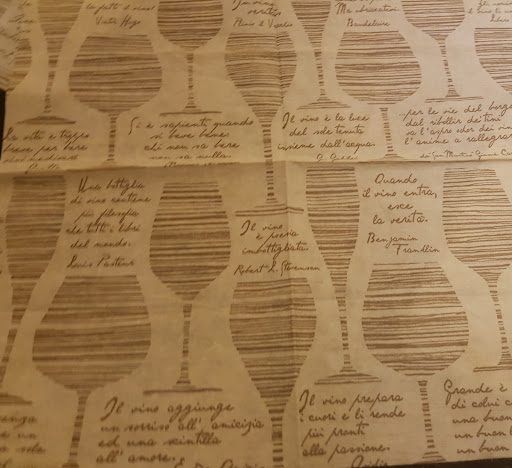 fatto il vino!
Victor Hugo
In vino
veritas
Plinio il Vecchio
Baudelaire
Si è sapienti quando
si beve bene:
chi non sa bere
non sa nulla.
Il vino è la luce
del sole tenuta
insieme dall'acqua.
G. Galilei
per le vie del borgo
dal ribollir de' tini
va l'aspro odor dei vini
l'anime a rallegrar
La vita è troppo
breve per bere
Una bottiglia
di vino contiene
più filosofia
che tutti i libri
del mondo.
Louis Pasteur
Il vino
è poesia
imbottigliata.
Robert L. Stevenson
Quando
il vino entra,
esce
la verità.
Benjamin
Franklin
Il vino aggiunge
un sorriso all'amicizia
ed una scintilla
all'amore.
Il vino prepara
i cuori e li rende
più pronti
alla passione.
Grande è
di colui c
una buon
un buon
un buon